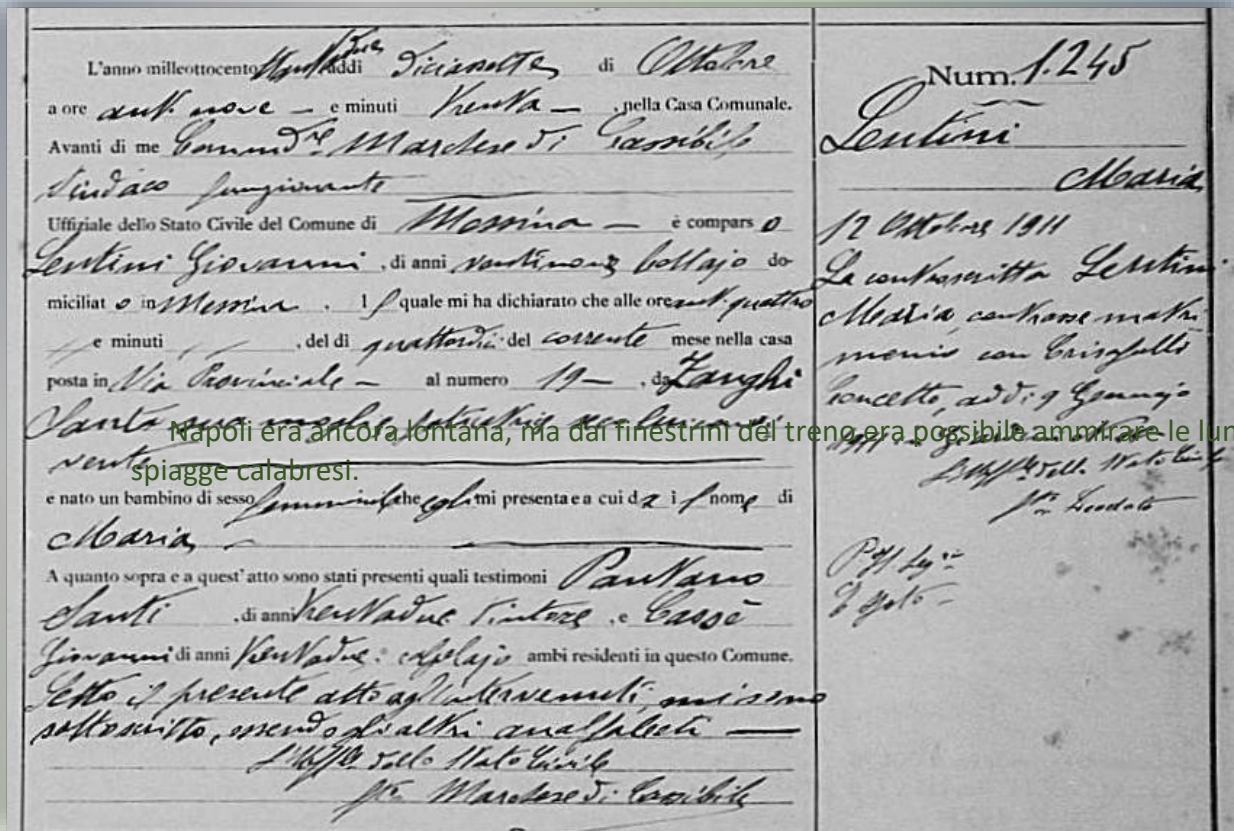 L'anno milleottocento addì Diciasette di Ottobre
a ore ant. nove — e minuti trenta — , nella Casa Comunale.
Avanti di me Comm.dre Marchese di Cassibile
Sindaco funzionante
Uffiziale dello Stato Civile del Comune di Messina — è compars o
Lentini Giovanni , di anni ventinove bottajo do-
miciliat o in Messina . l quale mi ha dichiarato che alle ore ant. quattro
e minuti , del dì quattordici del corrente mese nella casa
posta in Via Provinciale — al numero 19 — , da Zanghi
Santa sua moglie seco lui convi
vente
Napoli era ancora lontana, ma dai finestrini del treno era possibile ammirare le lun
spiagge calabresi.
e nato un bambino di sesso femminile che egli mi presenta e a cui dà i l nome di
Maria
A quanto sopra e a quest' atto sono stati presenti quali testimoni Pantano
Santi , di anni trentadue Pintore , e Cassè
Giovanni di anni trentadue ambi residenti in questo Comune.
Letto il presente atto agl'intervenuti, mi sono
sottoscritto, essendo gli altri analfabeti —
L'Uff.le dello Stato Civile
Marchese di Cassibile
Num. 1.245
Lentini
Maria
12 Ottobre 1911
La controscritta Lentini
Maria, contrasse matri
monio con Crisafulli
Concetto, addì 9 Gennajo
1911
L'Uff.le dello Stato Civile